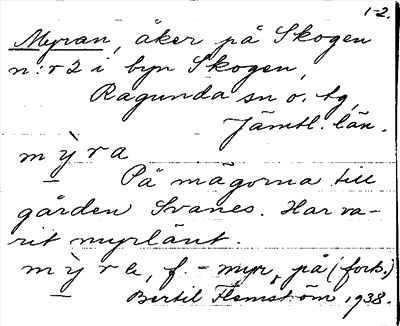 1-2.
Myran, åker på Skogen
n:r 2 i byn Skogen,
Ragunda sn o. tg,
Jämtl. län.
mỳra
På mägorna till
gården Svanes. Har va-
rit myrlänt.
mỳra, f. - myr, på (fork.)
Bertil Flemström 1938.